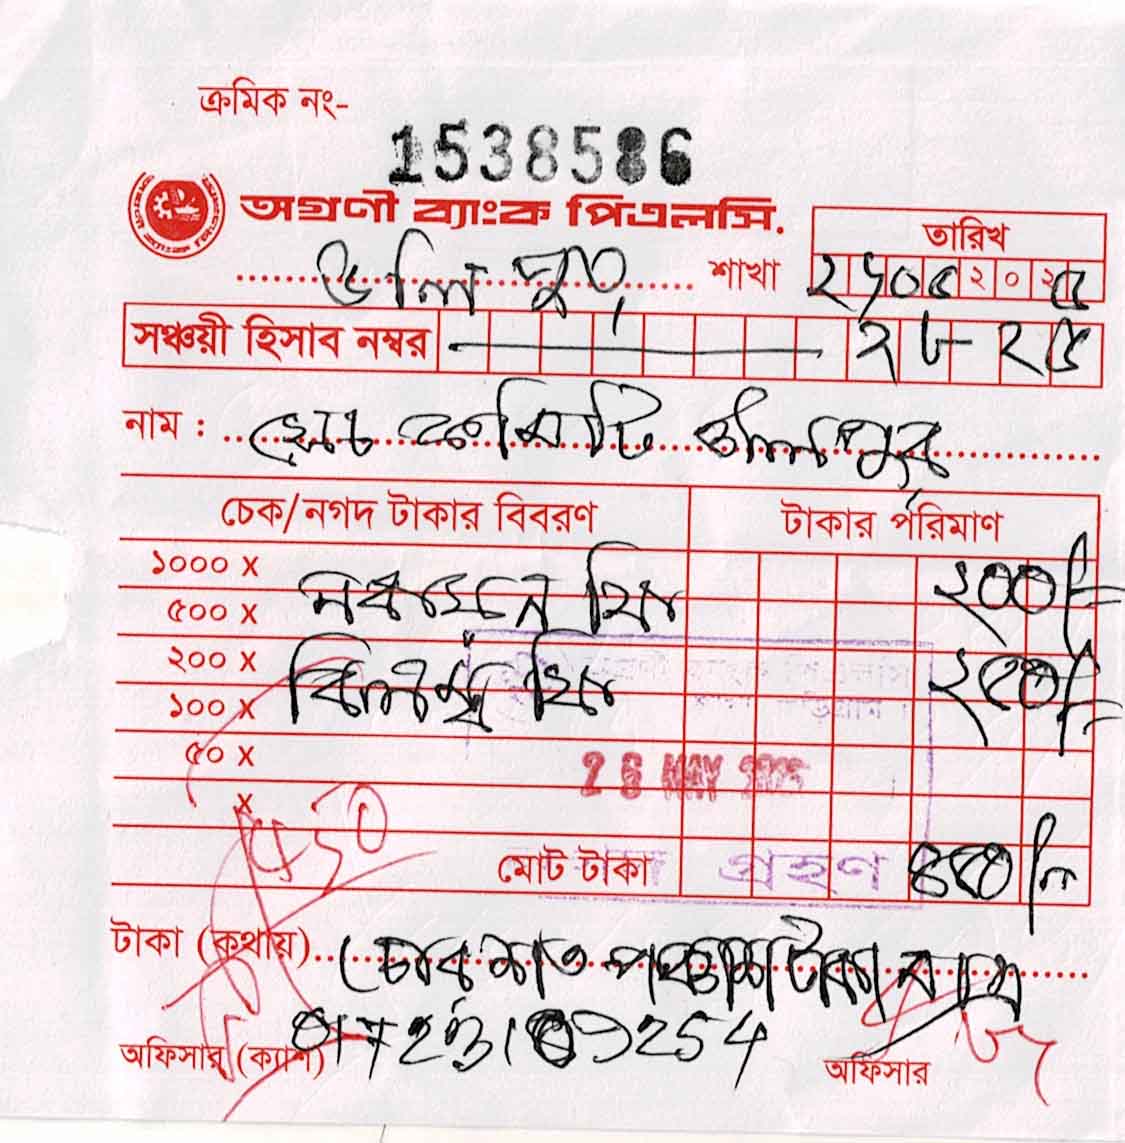 ক্রমিক নং-
1538586
অগ্রণী ব্যাংক পিএলসি.
তারিখ
উলিপুর শাখা
২৬০৫২০২৫
সঞ্চয়ী হিসাব নম্বর ২৮২৫
নাম : সেচ কমিটি উলিপুর
চেক/নগদ টাকার বিবরণ টাকার পরিমাণ
১০০০ x নবায়ন ফি ২০০/=
৫০০ x
২০০ x বিলম্ব ফি ২৫০/=
১০০ x
৫০ x
26 MAY 2025
x
450
মোট টাকা গ্রহণ ৪৫০/=
টাকা (কথায়) চার শত পঞ্চাশ টাকা মাত্র
অফিসার (ক্যাশ) অফিসার